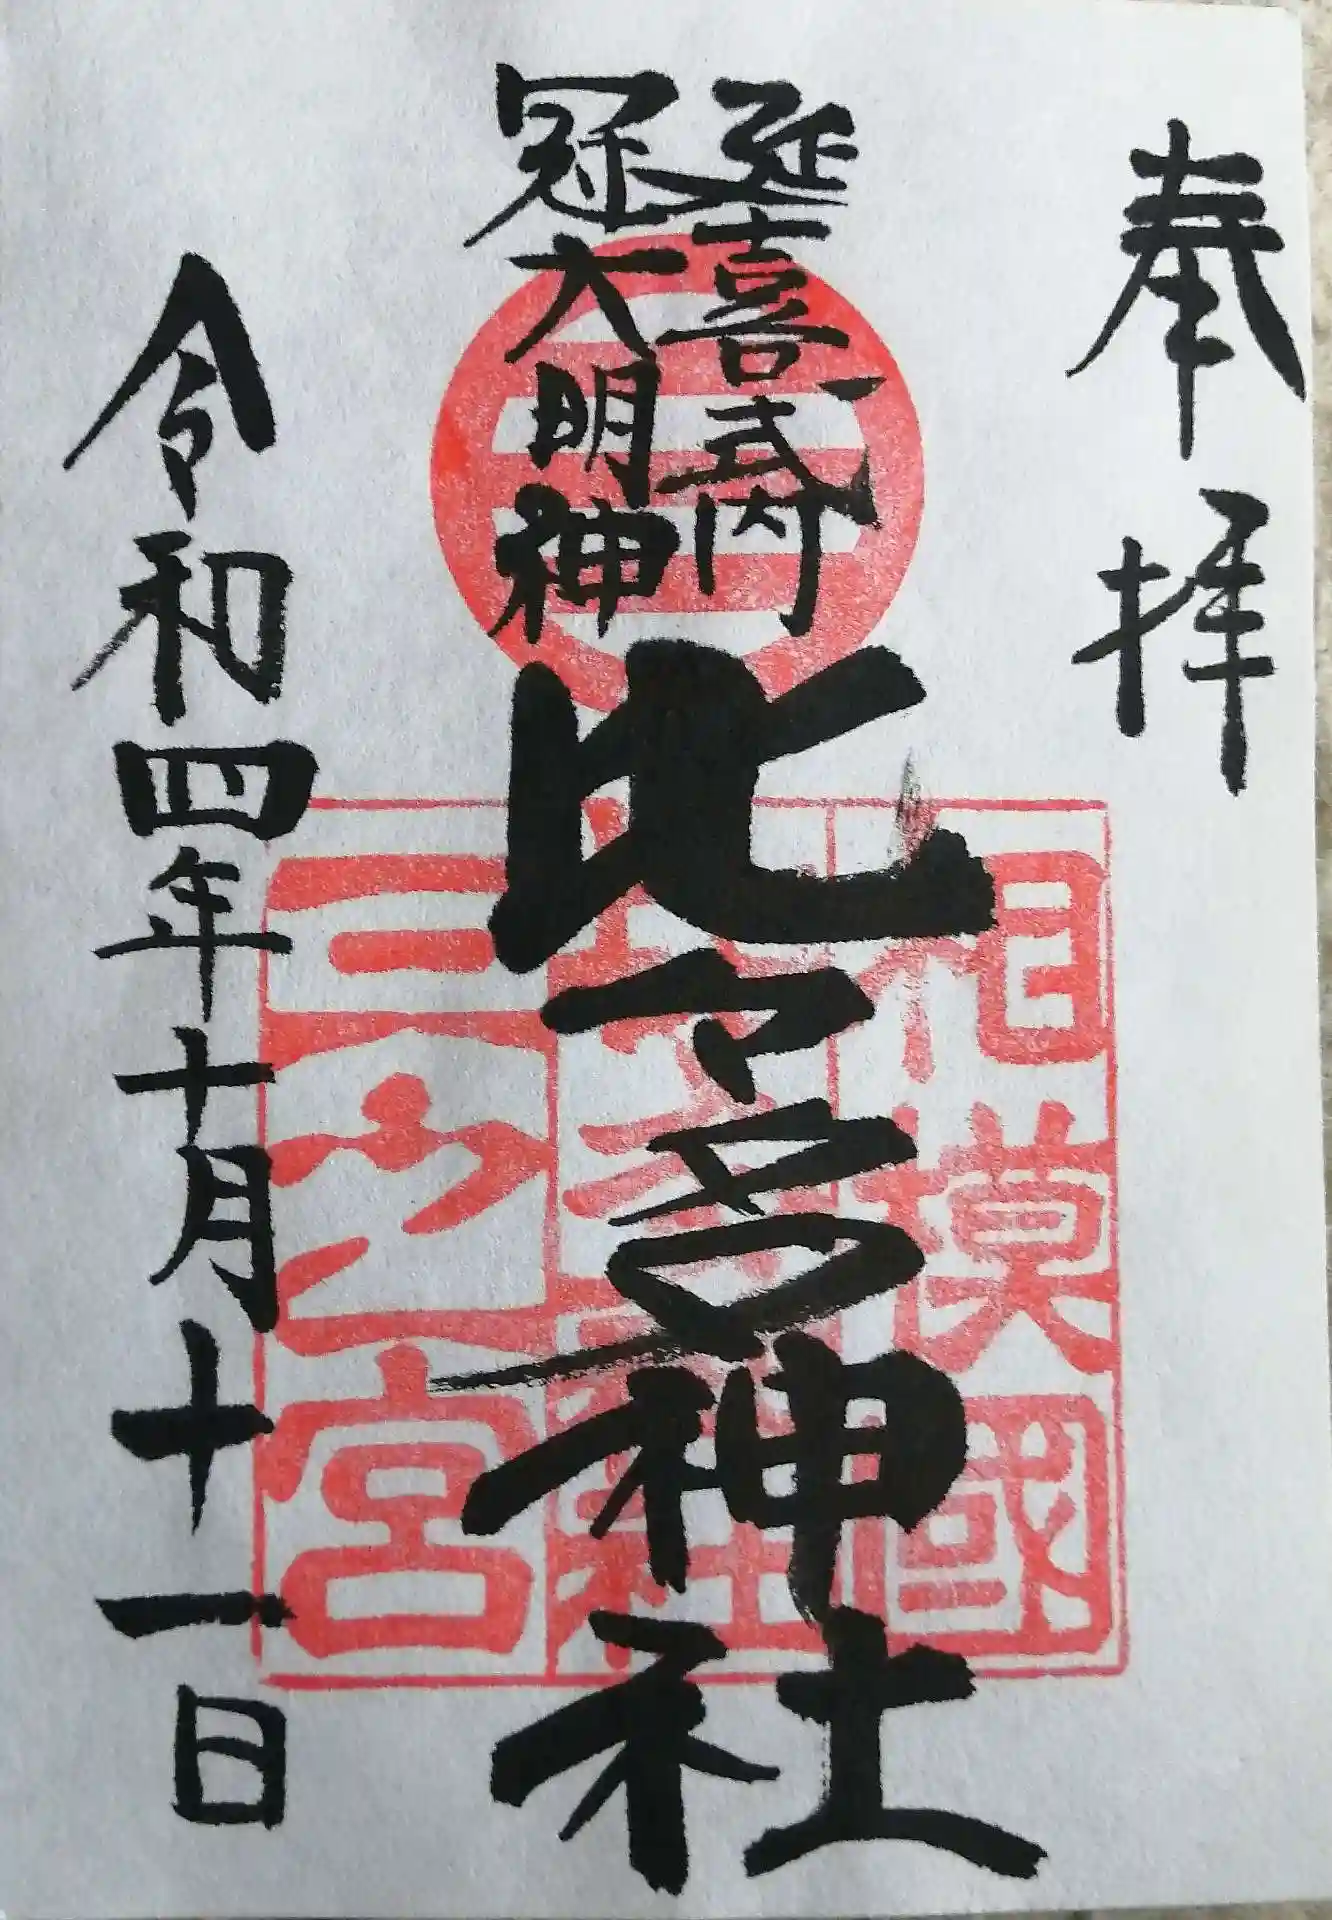 奉拝
延喜式内
冠大明神
比々多神社
令和四年十月十一日
相模國
三之宮